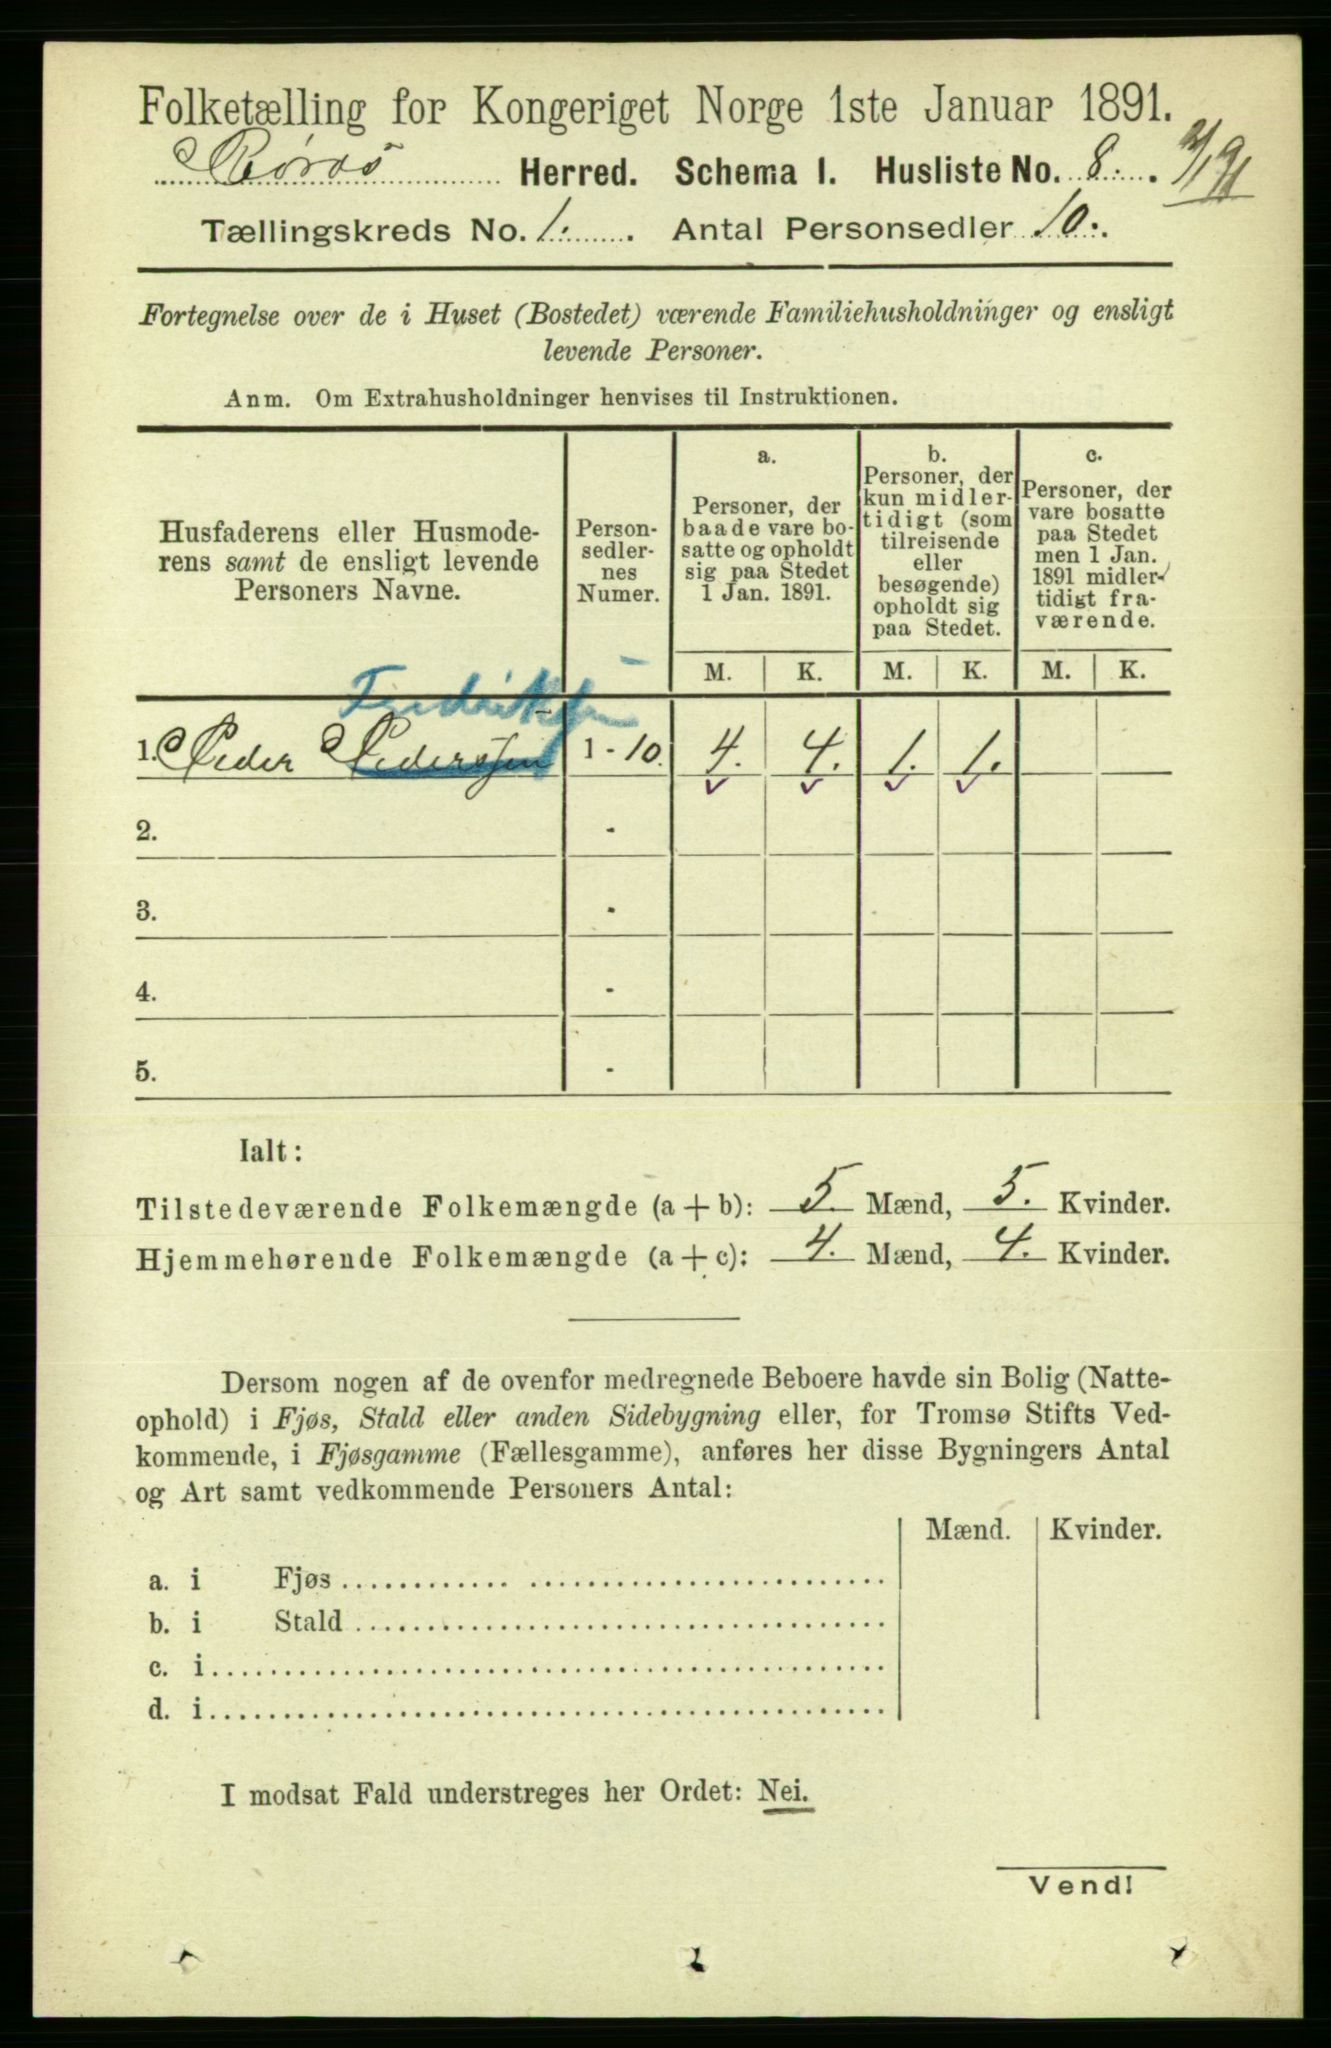 Folketælling for Kongeriget Norge 1ste Januar 1891.
Røros Herred. Schema 1. Husliste No. 8. 2/1 91
Tællingskreds No. 1. Antal Personsedler 10.
Fortegnelse over de i Huset (Bostedet) værende Familiehusholdninger og ensligt
levende Personer.
Anm. Om Extrahusholdninger henvises til Instruktionen.
Husfaderens eller Husmode-
rens samt de ensligt levende
Personers Navne.
Person-
sedler-
nes
Numer.
a.
Personer, der
baade vare bo-
satte og opholdt
sig paa Stedet
1 Jan. 1891.
b.
Personer, der
kun midler-
tidigt (som
tilreisende
eller
besøgende)
opholdt sig
paa Stedet.
c.
Personer, der
vare bosatte
paa Stedet
men 1 Jan.
1891 midler-
tidigt fra-
værende.
M. K. M. K. M. K.
Fredriksen
1. Peder Pederssen 1 - 10. 4. 4. 1. 1.
2. -
3. -
4. -
5. -
Ialt:
Tilstedeværende Folkemængde (a + b): 5. Mænd, 5. Kvinder.
Hjemmehørende Folkemængde (a + c): 4. Mænd, 4. Kvinder.
Dersom nogen af de ovenfor medregnede Beboere havde sin Bolig (Natte-
ophold) i Fjøs, Stald eller anden Sidebygning eller, for Tromsø Stifts Ved-
kommende, i Fjøsgamme (Fællesgamme), anføres her disse Bygningers Antal
og Art samt vedkommende Personers Antal:
Mænd. Kvinder.
a. i Fjøs
b. i Stald
c. i
d. i
I modsat Fald understreges her Ordet: Nei.
Vend!